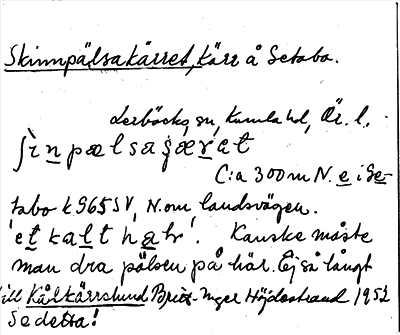 Skinnpälsakärret, kärr å Setabo.
Lerbäcks sn, Kumla hd, Ör. l.
ʃìn̲pælsaʂæ̲r̲at
C:a 300 m N. e i Se-
tabo k 965 SV, N. om landsvägen.
'et̲ kal̲t ha̲l'. Kanske måste
man dra pälsen på här. Ej så långt
till Kålkärrslund Britt-Inger Höjdestrand 1952
Se detta!